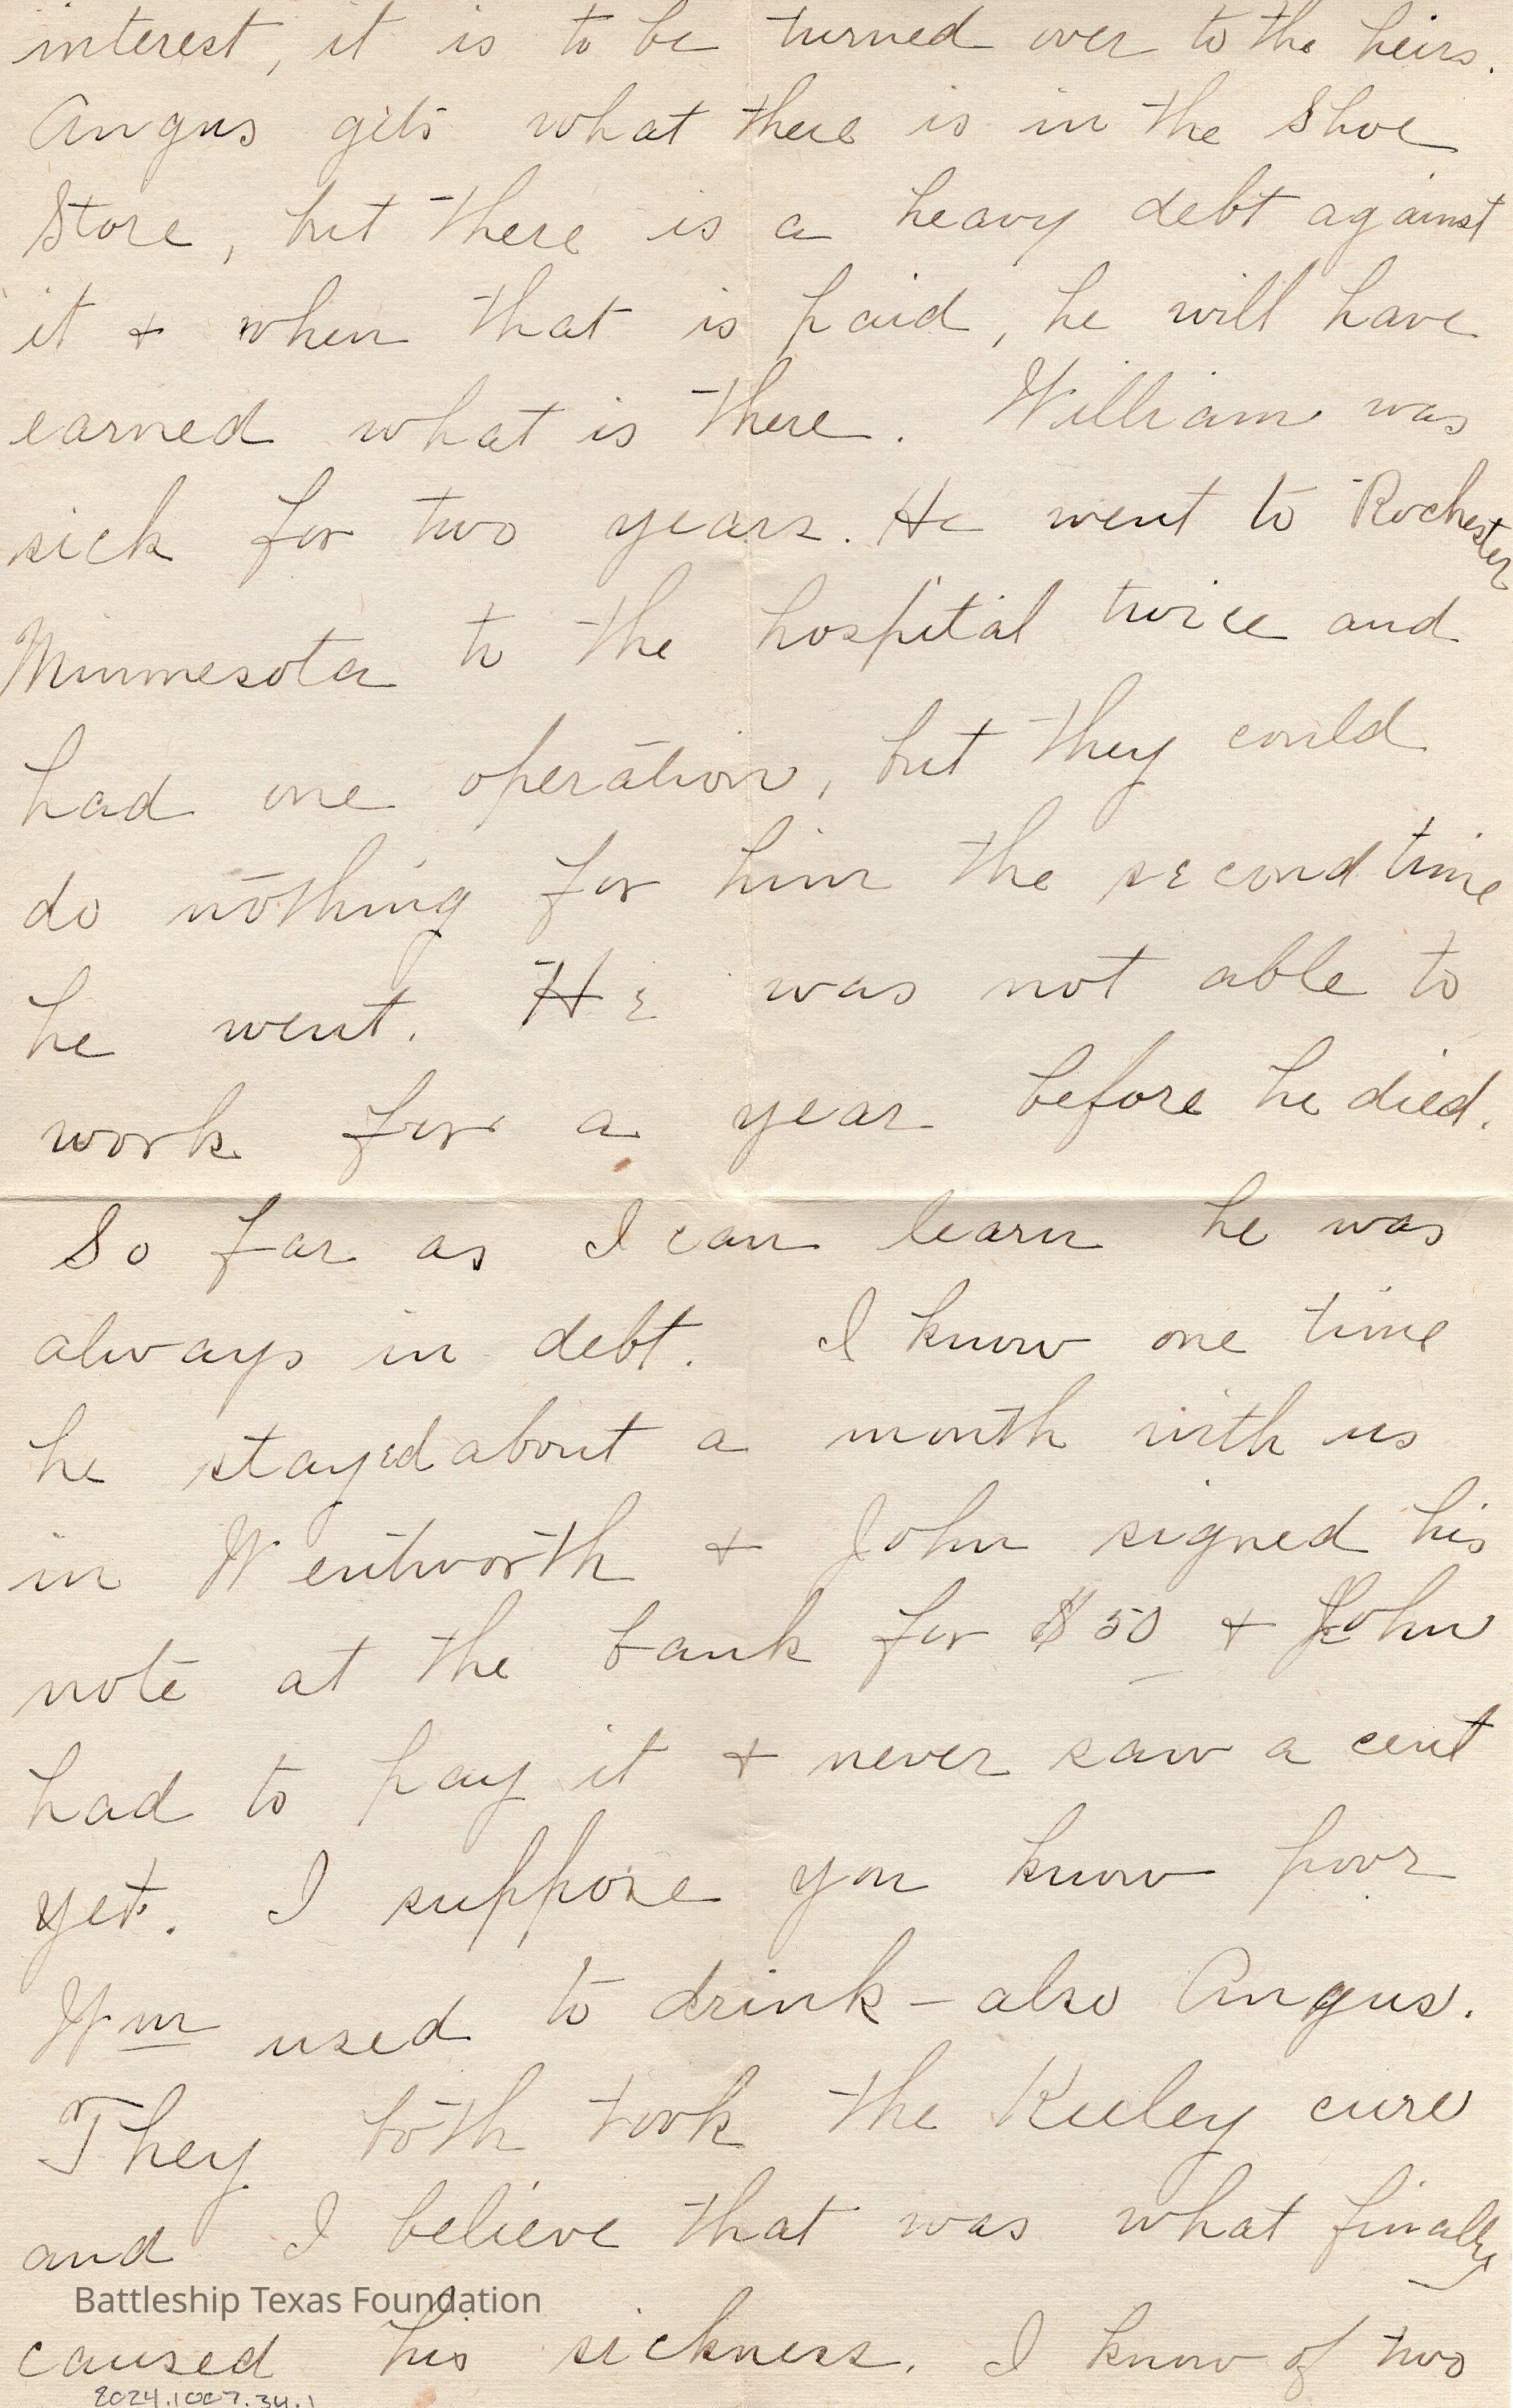 interest, it is to be turned over to the heirs.
Angus gets what there is in the Shoe
Store, but there is a heavy debt against
it + when that is paid, he will have
earned what is there. William was
sick for two years. He went to Rochester
Minnesota to the hospital twice and
had one operation, but they could
do nothing for him the second time
he went. He was not able to
work for a year before he died.
So far as I can learn he was
always in debt. I know one time
he stayed about a month with us
in Wentworth + John signed his
note at the bank for $50 + John
had to pay it + never saw a cent
yet. I suppose you know poor
Wm used to drink - also Angus.
They both took the Keeley cure
and I believe that was what finally
Battleship Texas Foundation
caused his sickness. I know of two
2024.1007.34.1